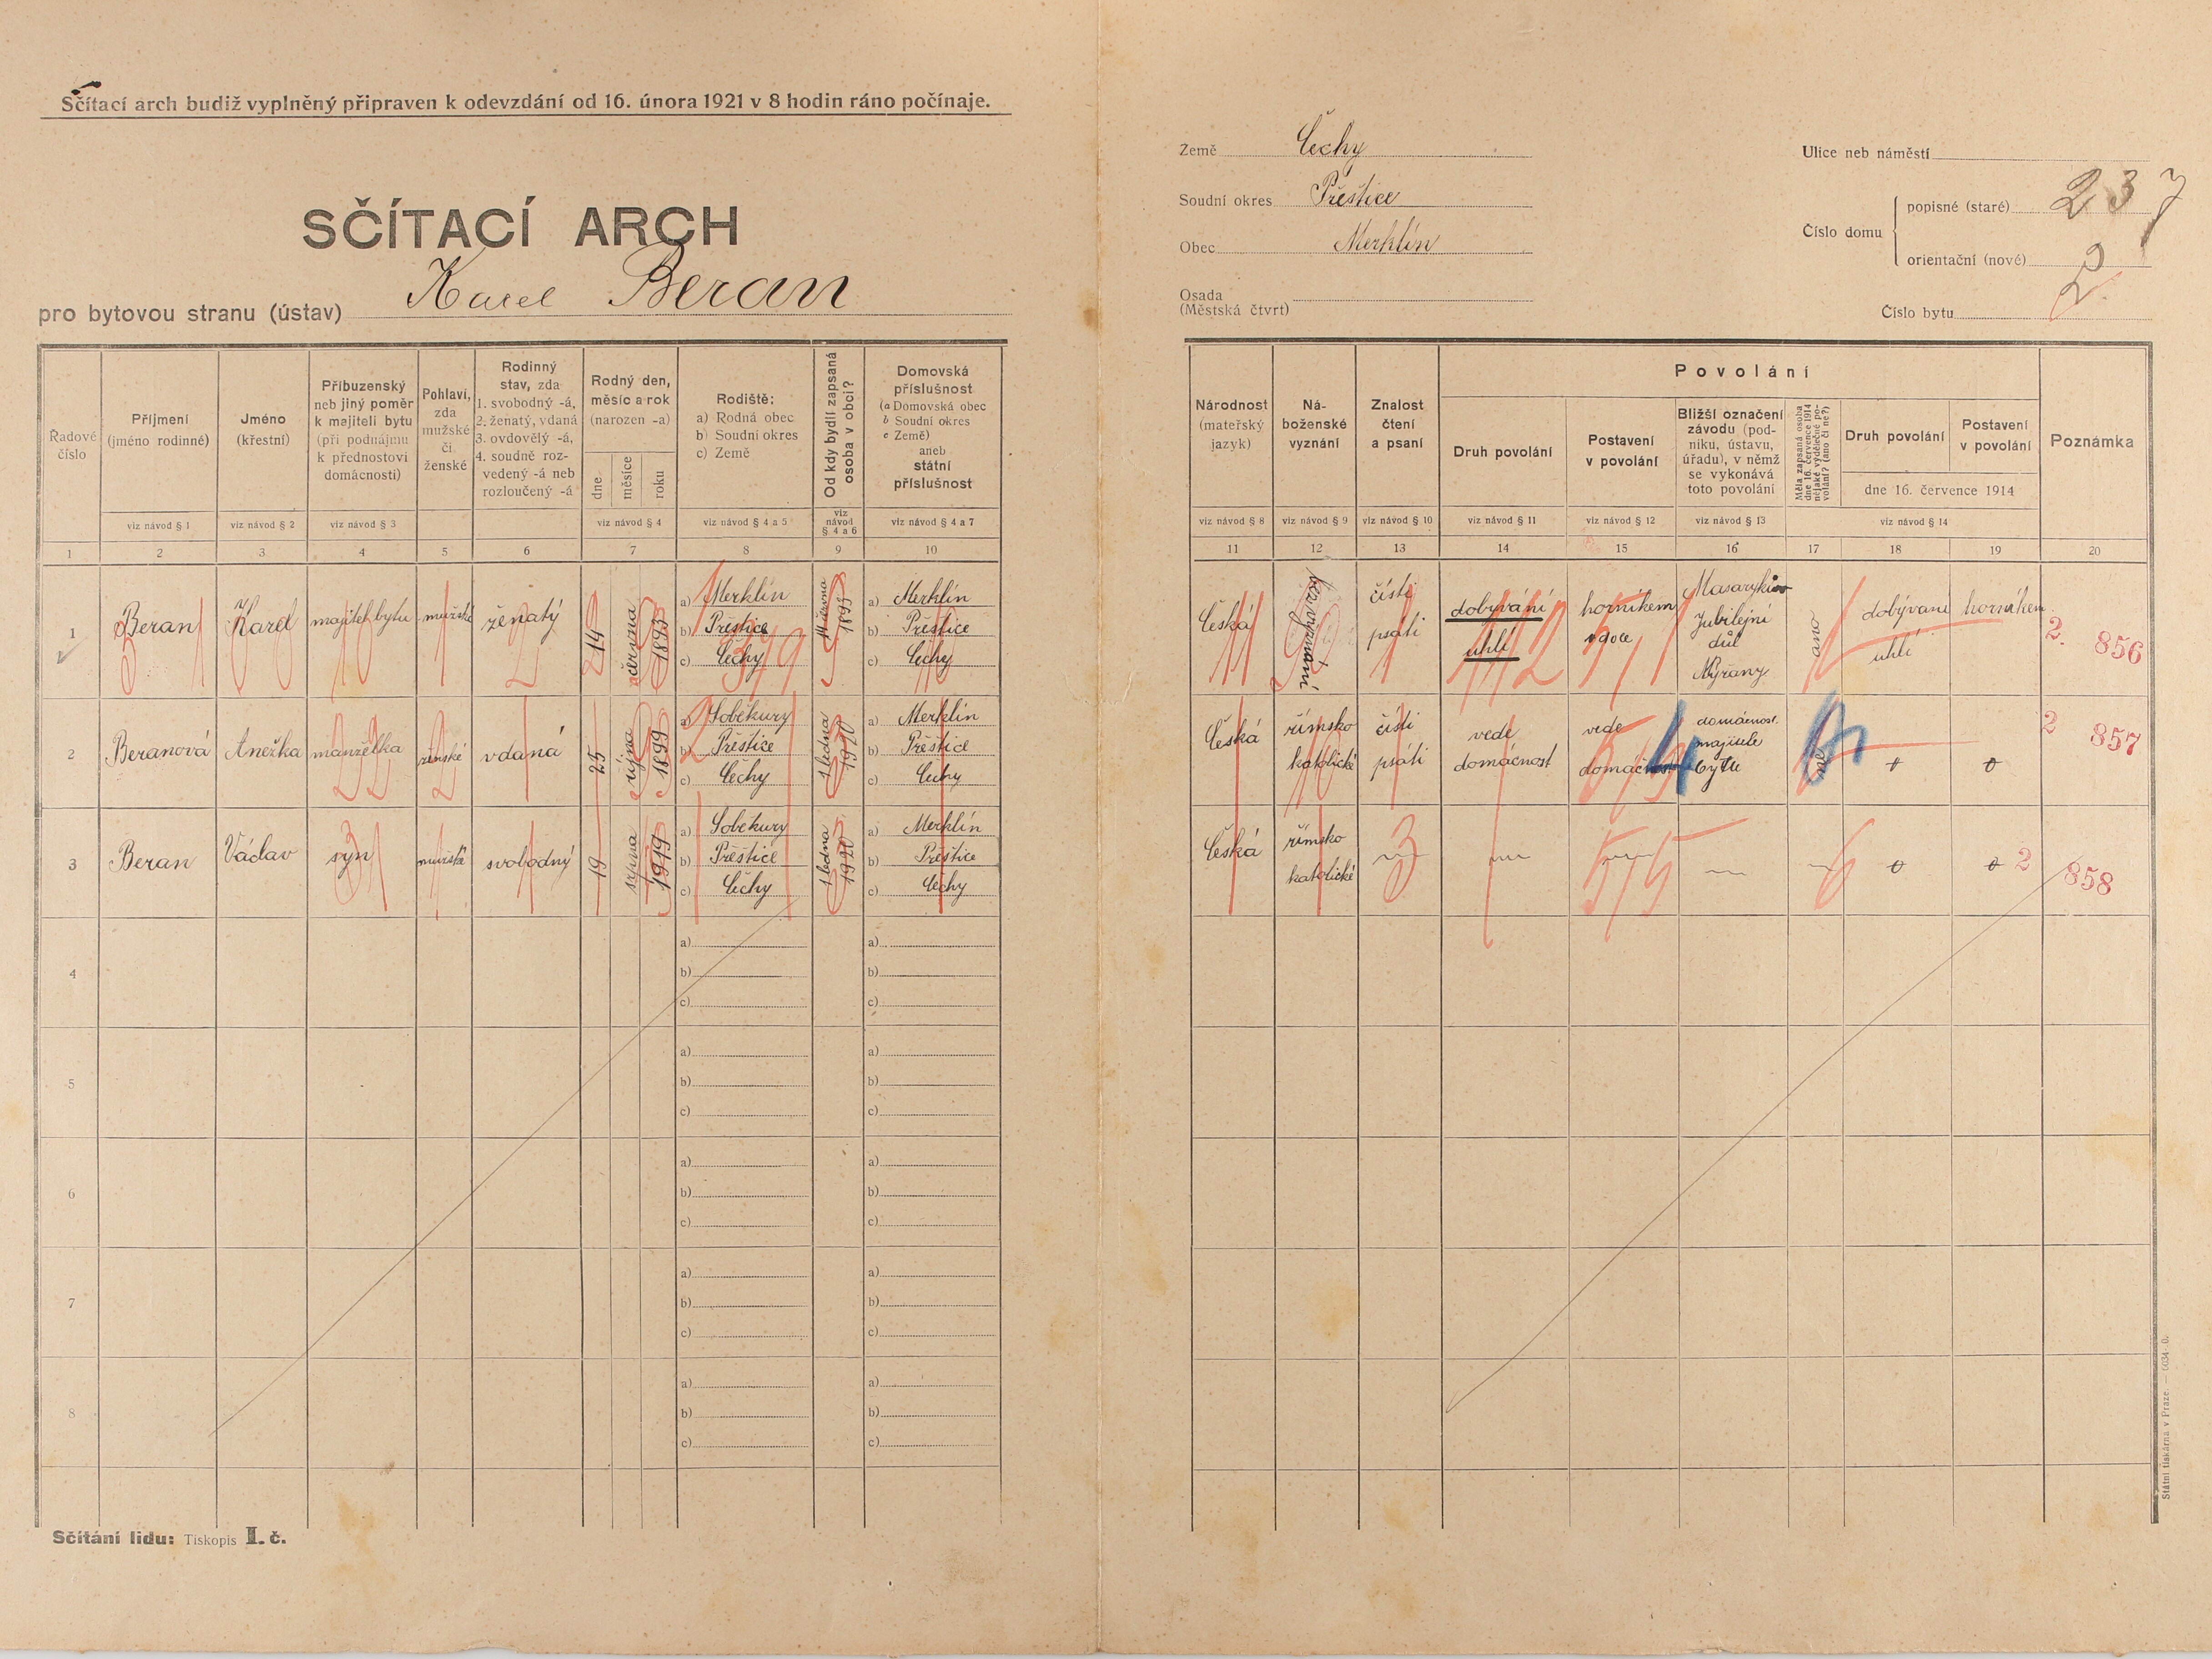 Sčítací arch budiž vyplněný připraven k odevzdání od 16. února 1921 v 8 hodin ráno počínaje.
SČÍTACÍ ARCH
pro bytovou stranu (ústav) Karel Beran
Země Čechy
Soudní okres Přeštice
Obec Merklín
Osada
(Městská čtvrť)
Ulice neb náměstí
Číslo domu
popisné (staré) 237
orientační (nové)
Číslo bytu 2.
Řadové číslo
Příjmení (jméno rodinné)
Jméno (křestní)
Příbuzenský neb jiný poměr k majiteli bytu (při podnájmu k přednostovi domácnosti)
Pohlaví, zda mužské či ženské
Rodinný stav, zda 1. svobodný -á, 2. ženatý, vdaná 3. ovdovělý -á, 4. soudně rozvedený -á neb rozloučený -á
Rodný den, měsíc a rok (narozen -a)
dne
měsíce
roku
Rodiště: a) Rodná obec b) Soudní okres c) Země
Od kdy bydlí zapsaná osoba v obci?
Domovská příslušnost (a Domovská obec b Soudní okres c Země) aneb státní příslušnost
Národnost (mateřský jazyk)
Náboženské vyznání
Znalost čtení a psaní
Povolání
Druh povolání
Postavení v povolání
Bližší označení závodu (podniku, ústavu, úřadu), v němž se vykonává toto povolání
Měla zapsaná osoba dne 16. července 1914 nějaké výdělečné povolání? (ano či ne?)
Druh povolání
Postavení v povolání
dne 16. července 1914
Poznámka
viz návod § 1
viz návod § 2
viz návod § 3
viz návod § 4
viz návod § 4 a 5
viz návod § 4 a 6
viz návod § 4 a 7
viz návod § 8
viz návod § 9
viz návod § 10
viz návod § 11
viz návod § 12
viz návod § 13
viz návod § 14
1 2 3 4 5 6 7 8 9 10 11 12 13 14 15 16 17 18 19 20
1 Beran Karel majitel bytu mužské ženatý 14 června 1893
a) Merklín
b) Přeštice
c) Čechy
14 června 1893
a) Merklín
b) Přeštice
c) Čechy
Česká bez vyznání čísti psáti
dobývání uhlí
horníkem
Masarykův Jubilejní důl Nýřany
ano
dobývaní uhlí
horníkem
2. 856
2 Beranová Anežka manželka ženské vdaná 25 října 1899
a) Soběkury
b) Přeštice
c) Čechy
1 ledna 1920
a) Merklín
b) Přeštice
c) Čechy
Česká římsko katolické čísti psáti
vede domácnost
vede domácnost
domácnost majitele bytu
ne
2 857
3 Beran Václav syn mužské svobodný 19 srpna 1919
a) Soběkury
b) Přeštice
c) Čechy
1 ledna 1920
a) Merklín
b) Přeštice
c) Čechy
Česká římsko katolické
2 858
4
a)
b)
c)
a)
b)
c)
5
a)
b)
c)
a)
b)
c)
6
a)
b)
c)
a)
b)
c)
7
a)
b)
c)
a)
b)
c)
8
a)
b)
c)
a)
b)
c)
Sčítání lidu: Tiskopis I. č.
Státní tiskárna v Praze.